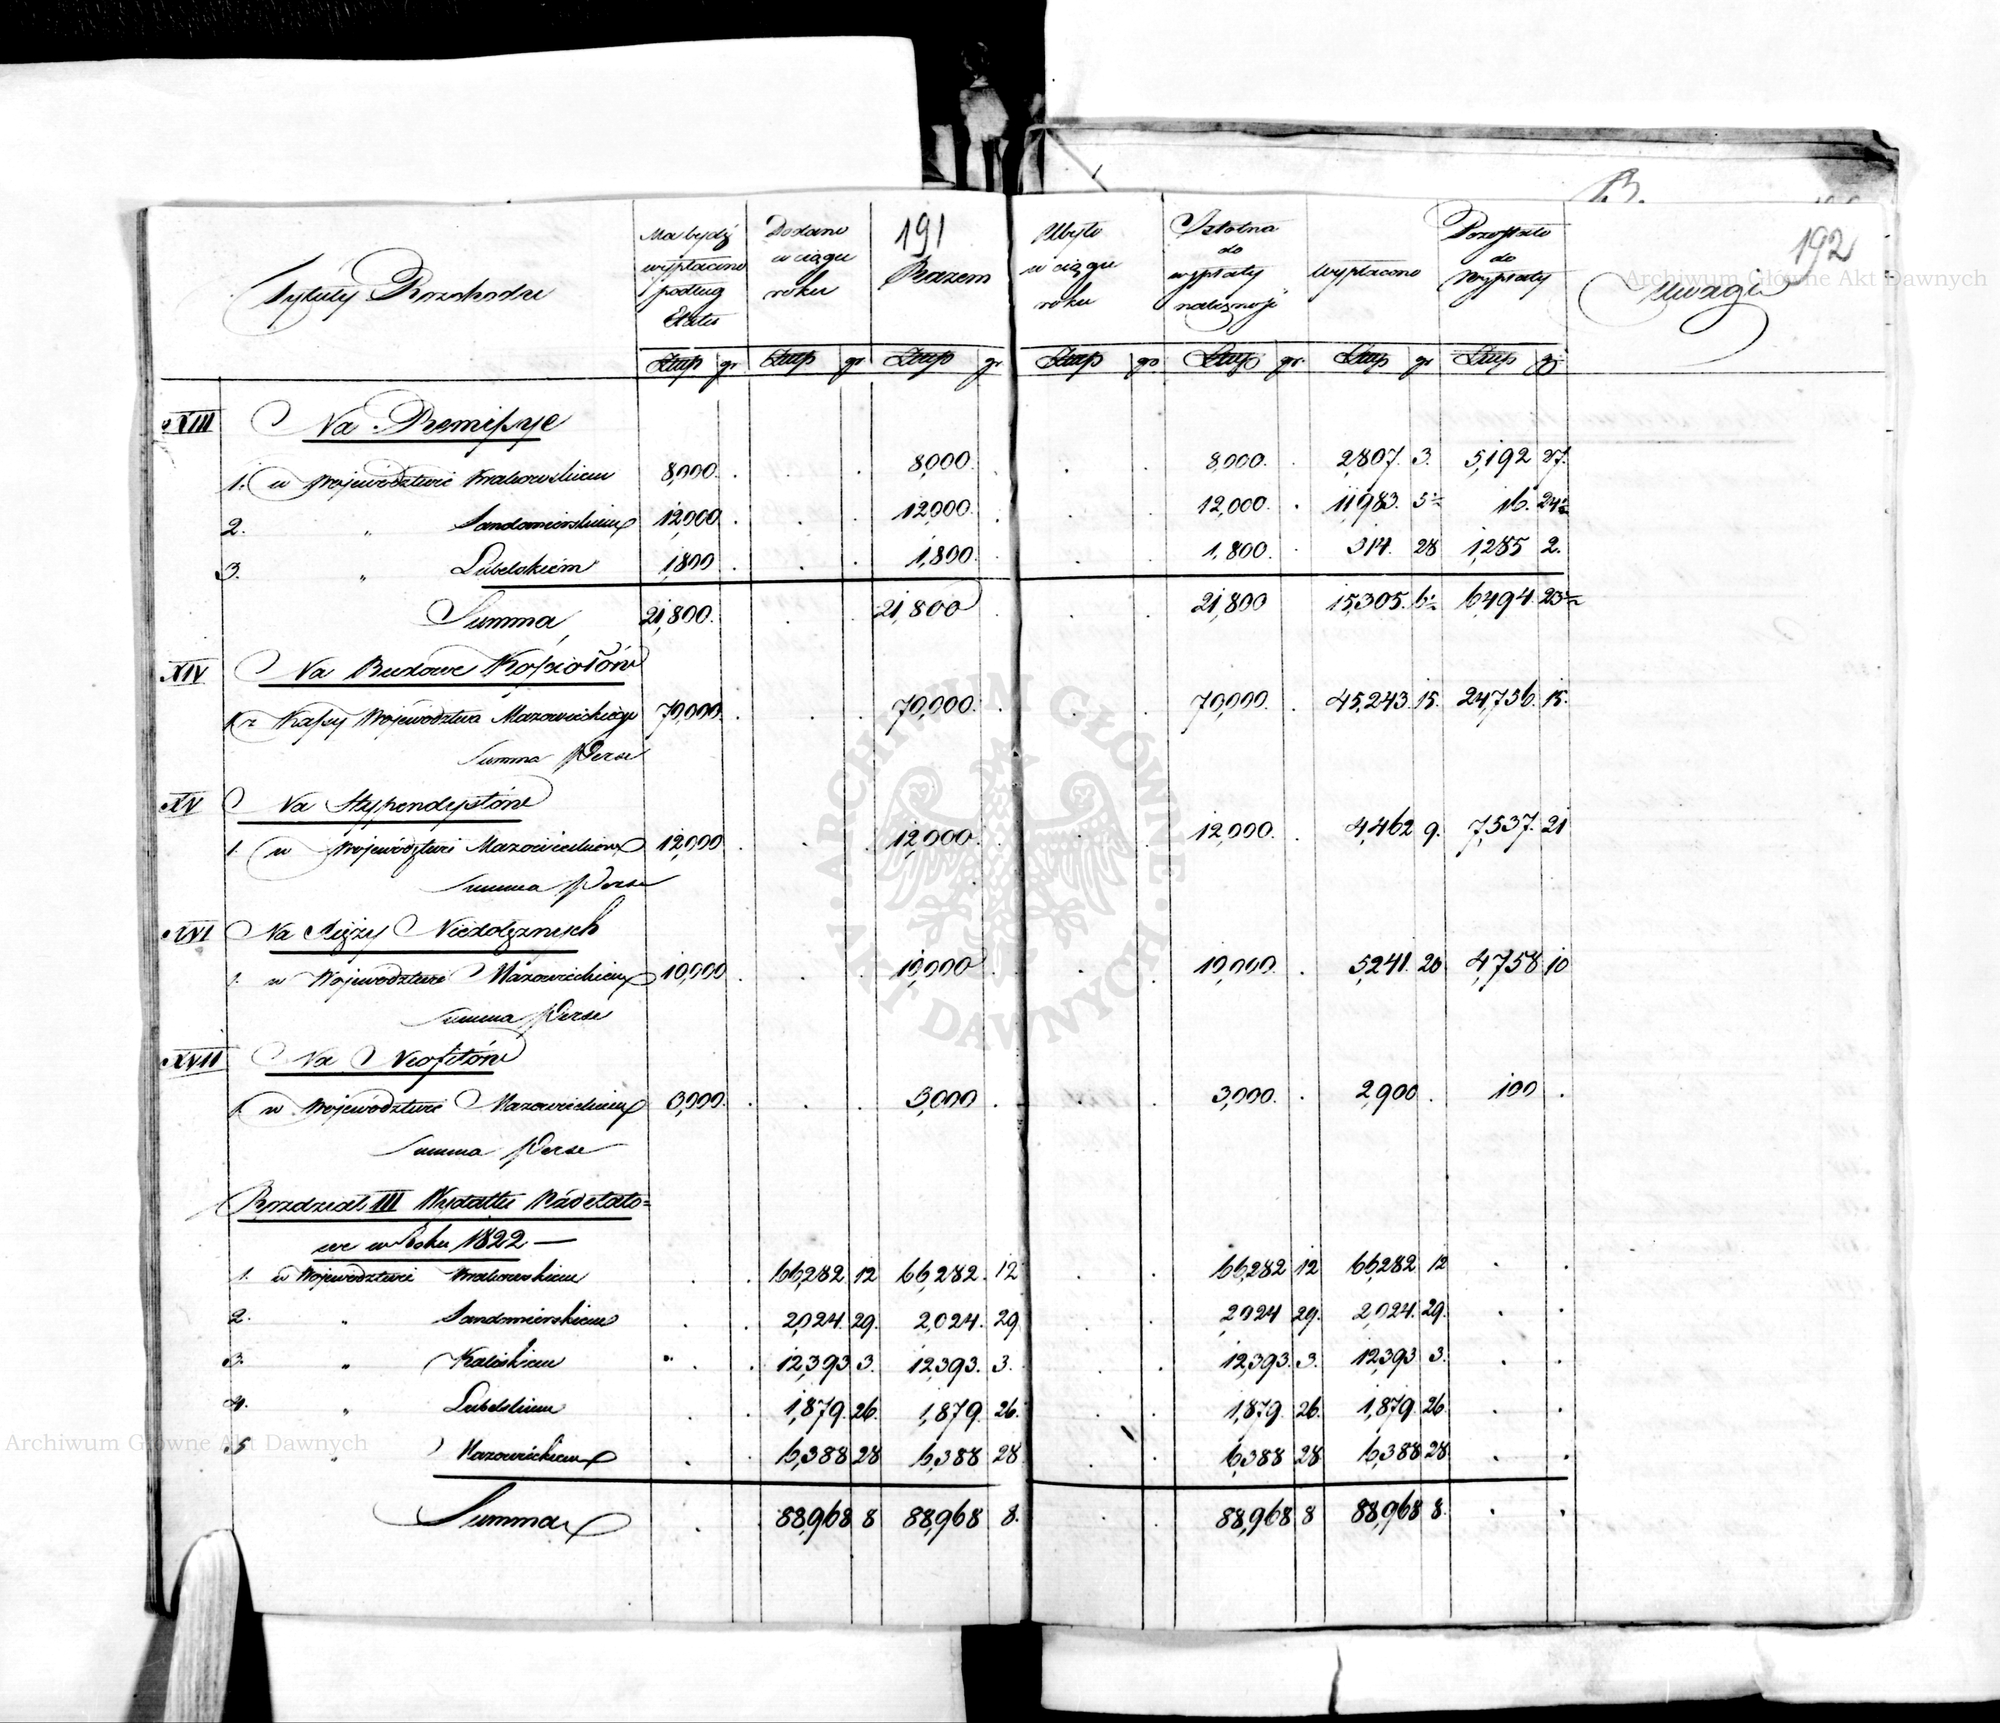 191
192
B.
Tytuły Rozchodu
Ma bydź wypłacono podług Etatu
Dodano w ciągu roku
Razem
Ubyło w ciągu roku
Istotna do wypłaty należność
Wypłacono
Pozostało do Wypłaty
Uwagi
Złłp gr Złłp gr Złłp gr Złłp gr Złłp gr Złłp gr Złłp gr
XIII Na Remissye
1. w Województwie Krakowskiem 8,000 . . . 8,000 . . . 8,000 . 2,807. 3. 5,192 27.
2. " Sandomierskiem 12,000 . . . 12,000 . . . 12,000 . 11,983. 5½ 16. 24½
3. " Lubelskiem 1,800 . . . 1,800 . . . 1,800 . 514. 28 1,285 2.
Summa 21,800 . . . 21,800 . . . 21,800 15,305. 6½ 6,494. 23½
XIV Na Budowe Kościołów
1. z Kassy Województwa Mazowieckiego 70,000 . . . 70,000 . . . 70,000 . 45,243 15. 24,756. 15.
Summa Perse
XV Na Stypendystów
1. w Województwie Mazowieckiem 12,000 . . . 12,000 . . . 12,000 . 4,462 9. 7,537. 21
Summa Perse
XVI Na Xięży Niedołężnych
1. w Województwie Mazowieckiem 10,000 . . . 10,000 . . . 10,000 . 5,241. 20 4,758 10
Summa Perse
XVII Na Neofitów
1. w Województwie Mazowieckiem 3,000 . . . 3,000 . . . 3,000 . 2,900 . 100 .
Summa Perse
Rozdział III Wydatki Nadetato=
we w Roku 1822 —
1. w Województwie Krakowskiem . . 66,282 12 66,282. 12 . . 66,282 12 66,282 12 . .
2. " Sandomierskiem . . 2,024. 29. 2,024. 29 . . 2,024 29. 2,024. 29. . .
3. " Kaliskiem . . 12,393 3. 12,393. 3. . . 12,393. 3. 12,393 3. . .
4. " Lubelskiem . . 1,879. 26. 1,879. 26. . . 1,879. 26. 1,879. 26. . .
5 " Mazowieckiem . . 6,388 28 6,388 28 . . 6,388 28 6,388 28 . .
Summa . . 88,968 8 88,968 8. . . 88,968 8 88,968 8. . .
ARCHIWUM GŁÓWNE AKT DAWNYCH
Archiwum Główne Akt Dawnych
Archiwum Główne Akt Dawnych